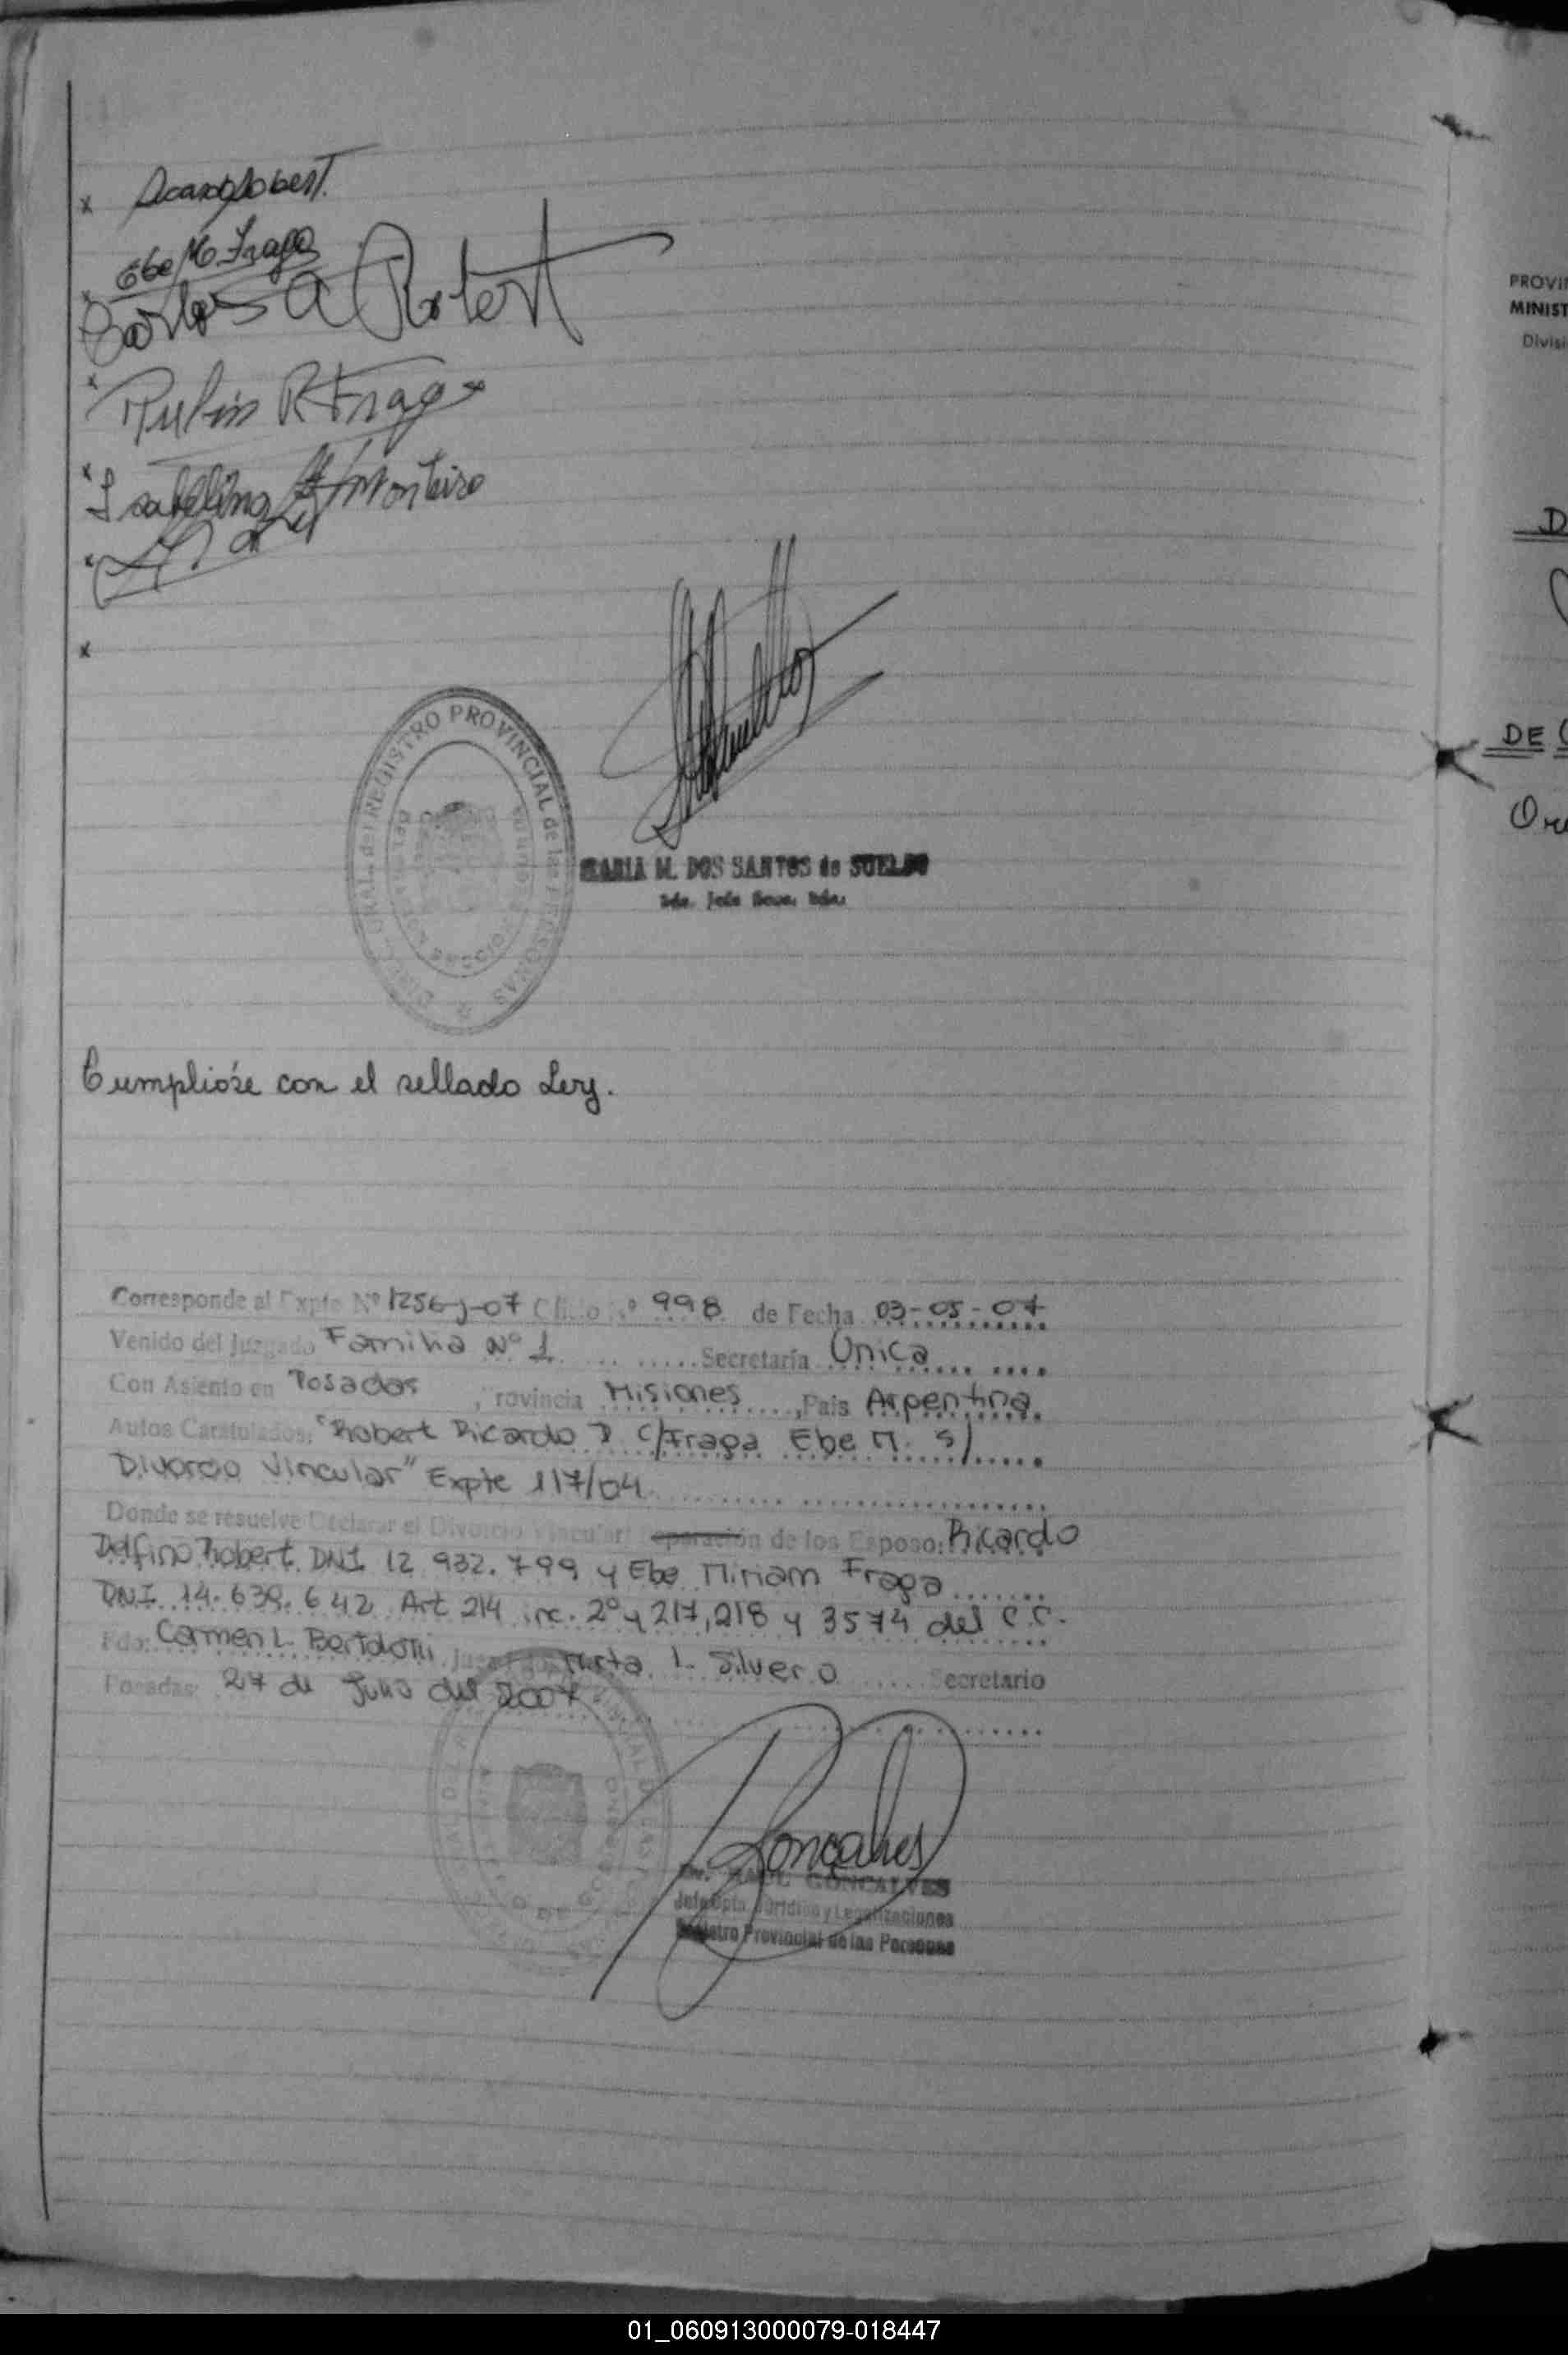 x RicardoRobert.
x Ebe M. Fraga
Carlos A Robert
x Rubin R Fraga
x Isabelina Monteiro
x
x
REGISTRO PROVINCIAL de las PERSONAS
MARIA M. DOS SANTOS de SUELDO
Cumplióse con el sellado Ley.
Corresponde al Expte Nº 1256-J-07 Oficio Nº 998 de Fecha 03-05-07
Venido del Juzgado Familia Nº 1 Secretaría Unica
Con Asiento en Posadas, Provincia Misiones, País Argentina.
Autos Caratulados: "Robert Ricardo D c/Fraga Ebe M. s/
Divorcio Vincular" Expte 117/04
Donde se resuelve Declarar el Divorcio Vincular de los Esposo: Ricardo
Delfino Robert DNI 12.932.799 y Ebe Miriam Fraga
DNI 14.639.642 Art 214 inc. 2º y 217, 218 y 3574 del C.C.
Fdo: Carmen L. Bertolotti Juez Mirta L. Silvero Secretario
Posadas: 27 de Julio del 2007
Goncalves
GONCALVES
Jefe Dpto. Jurídico y Legalizaciones
Registro Provincial de las Personas
PROVIN
MINIST
Divisi
D
DE C
Or
01_060913000079-018447